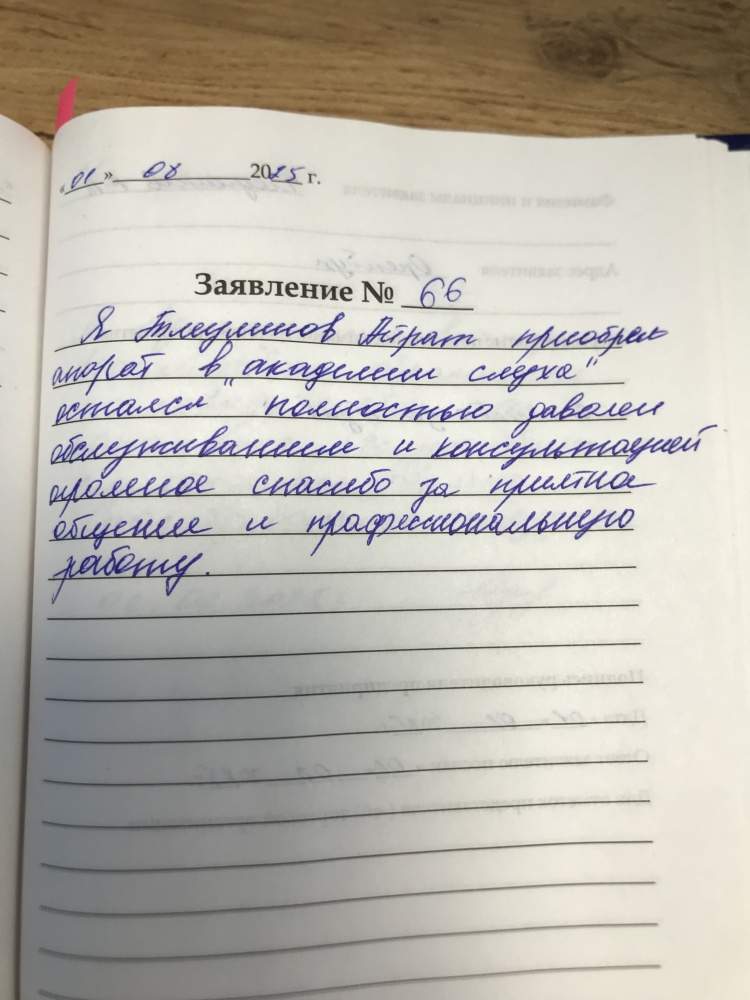 «01» 08 2025 г.
Заявление № 66
Я Тлеулинов Айрат приобрел
апорат в "академии слуха"
остался полностью даволен
обслуживанием и консультацией
огромное спасибо за приятное
общение и профессиональную
работу.